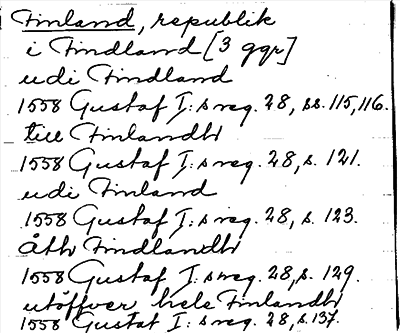 Finland, republik
i Findland [3 ggr]
udi Findland
1558 Gustaf I:s reg. 28, ss. 115, 116.
till Finlandh
1558 Gustaf I:s reg. 28, s. 121.
udi Finland
1558 Gustaf I:s reg. 28, s. 123.
åth Findlandh
1558 Gustaf I:s reg. 28, s. 129.
utöffver hele Finlandh
1558 Gustaf I:s reg. 28, s. 137.